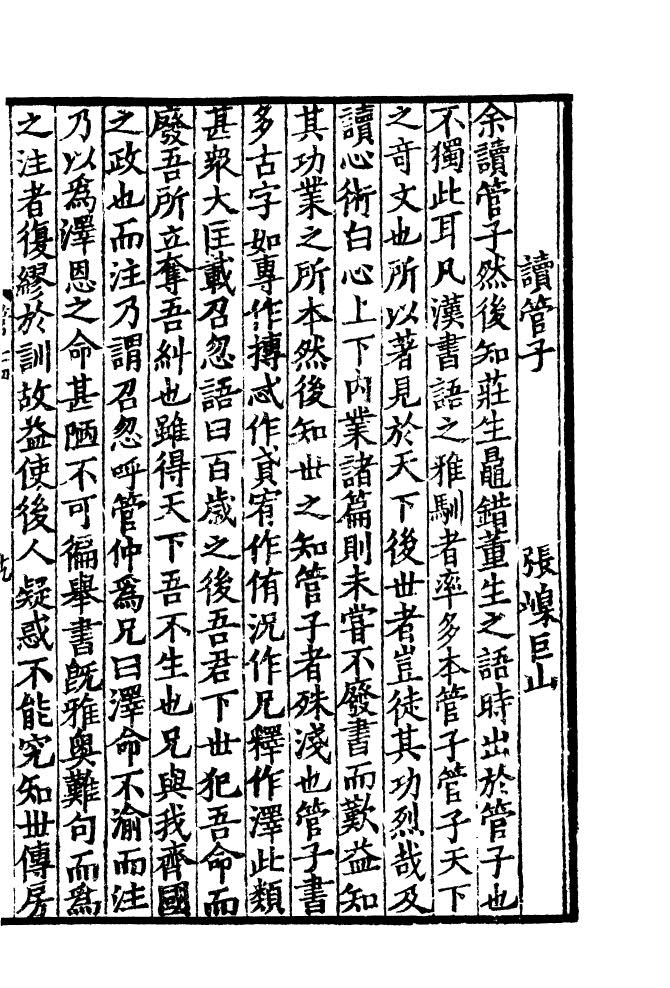 讀管子　張嵲巨山
余讀管子然後知莊生鼂錯董生之語時出於管子也
不獨此耳凡漢書語之雅馴者率多本管子管子天下
之奇文也所以著見於天下後世者豈徒其功烈哉及
讀心術白心上下內業諸篇則未嘗不廢書而歎益知
其功業之所本然後知世之知管子者殊淺也管子書
多古字如專作摶忒作貣宥作侑況作兄釋作澤此類
甚眾大匡載召忽語曰百歲之後吾君下世犯吾命而
廢吾所立奪吾糾也雖得天下吾不生也兄與我齊國
之政也而注乃謂召忽呼管仲爲兄曰澤命不渝而注
乃以爲澤恩之命甚陋不可徧舉書旣雅奧難句而爲
之注者復繆於訓故益使後人疑惑不能究知世傳房